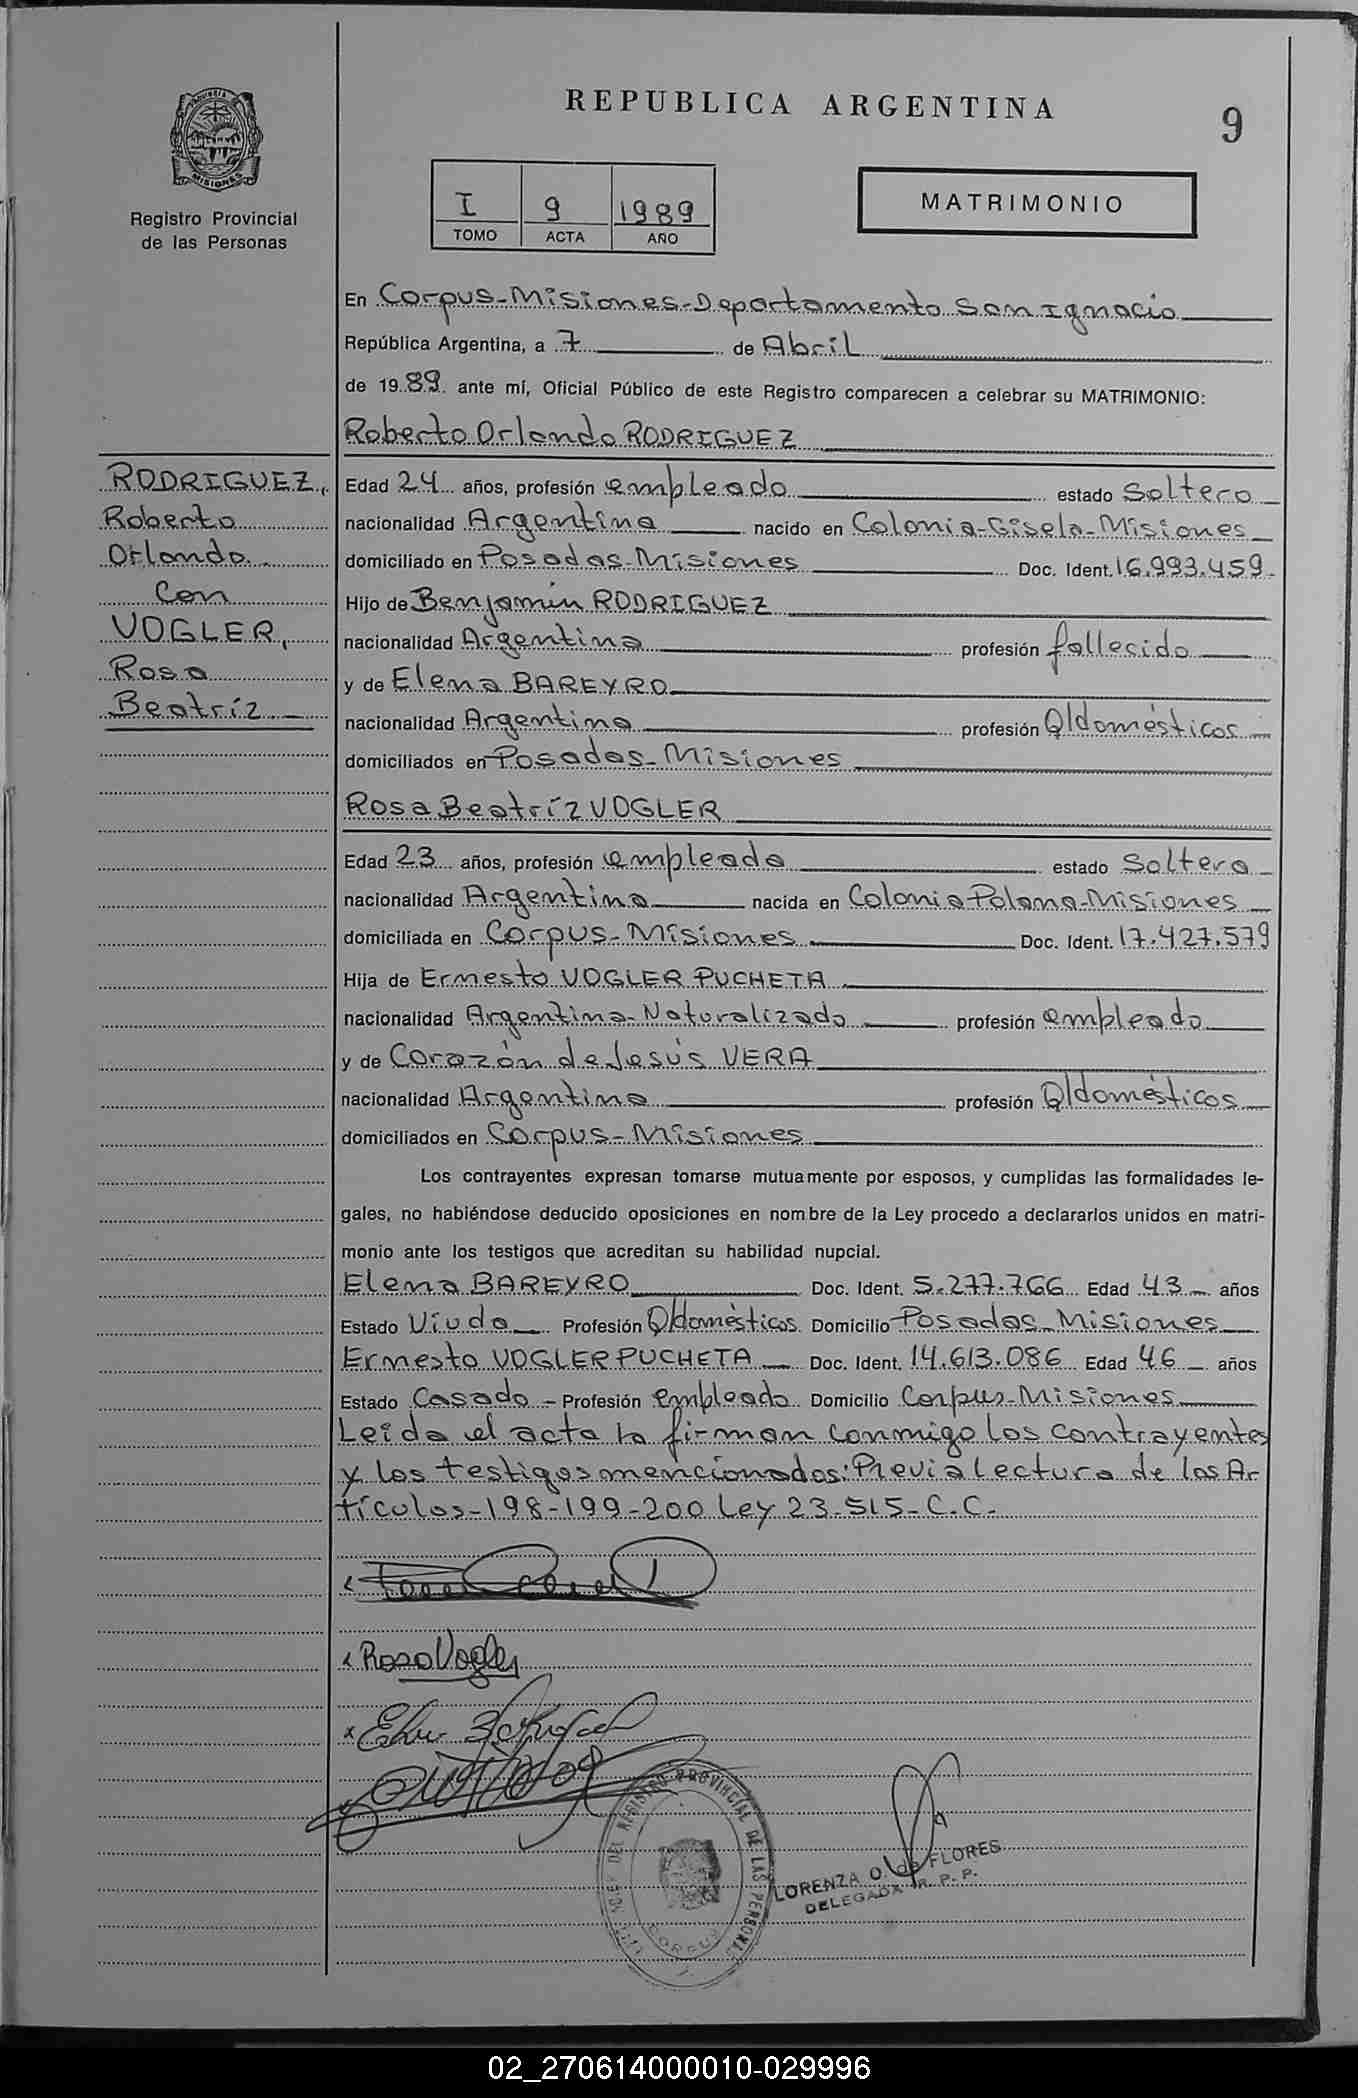 REPUBLICA ARGENTINA
9
PROVINCIA DE
MISIONES
Registro Provincial
de las Personas
I 9 1989
TOMO ACTA AÑO
MATRIMONIO
En Corpus-Misiones-Departamento San Ignacio
República Argentina, a 7 de Abril
de 1989 ante mí, Oficial Público de este Registro comparecen a celebrar su MATRIMONIO:
Roberto Orlando RODRIGUEZ
RODRIGUEZ,
Roberto
Orlando
Con
VOGLER,
Rosa
Beatríz
Edad 24 años, profesión empleado estado Soltero
nacionalidad Argentina nacido en Colonia-Gisela-Misiones
domiciliado en Posadas-Misiones Doc. Ident. 16.993.459-
Hijo de Benjamín RODRIGUEZ
nacionalidad Argentina profesión fallecido
y de Elena BAREYRO
nacionalidad Argentina profesión Q/domésticos
domiciliados en Posadas-Misiones
Rosa Beatríz VOGLER
Edad 23 años, profesión empleada estado Soltera
nacionalidad Argentina nacida en Colonia Polana-Misiones
domiciliada en Corpus-Misiones Doc. Ident. 17.427.579
Hija de Ernesto VOGLER PUCHETA
nacionalidad Argentina-Naturalizado profesión empleado
y de Corazón de Jesús VERA
nacionalidad Argentina profesión Q/domésticos
domiciliados en Corpus-Misiones
Los contrayentes expresan tomarse mutuamente por esposos, y cumplidas las formalidades le-
gales, no habiéndose deducido oposiciones en nombre de la Ley procedo a declararlos unidos en matri-
monio ante los testigos que acreditan su habilidad nupcial.
Elena BAREYRO Doc. Ident. 5.277.766 Edad 43 años
Estado Viuda Profesión Q/domésticos Domicilio Posadas-Misiones
Ernesto VOGLER PUCHETA Doc. Ident. 14.613.086 Edad 46 años
Estado Casado - Profesión empleado Domicilio Corpus-Misiones
Leída el acta la firman conmigo los contrayentes
y los testigos mencionados: Previa lectura de los Ar
tículos-198-199-200 Ley 23-515-C.C.-
Rosa Vogler
DEL REGISTRO PROVINCIAL DE LAS PERSONAS
CORPUS
LORENZA O. de FLORES
DELEGADA R. P. P.
02_270614000010-029996